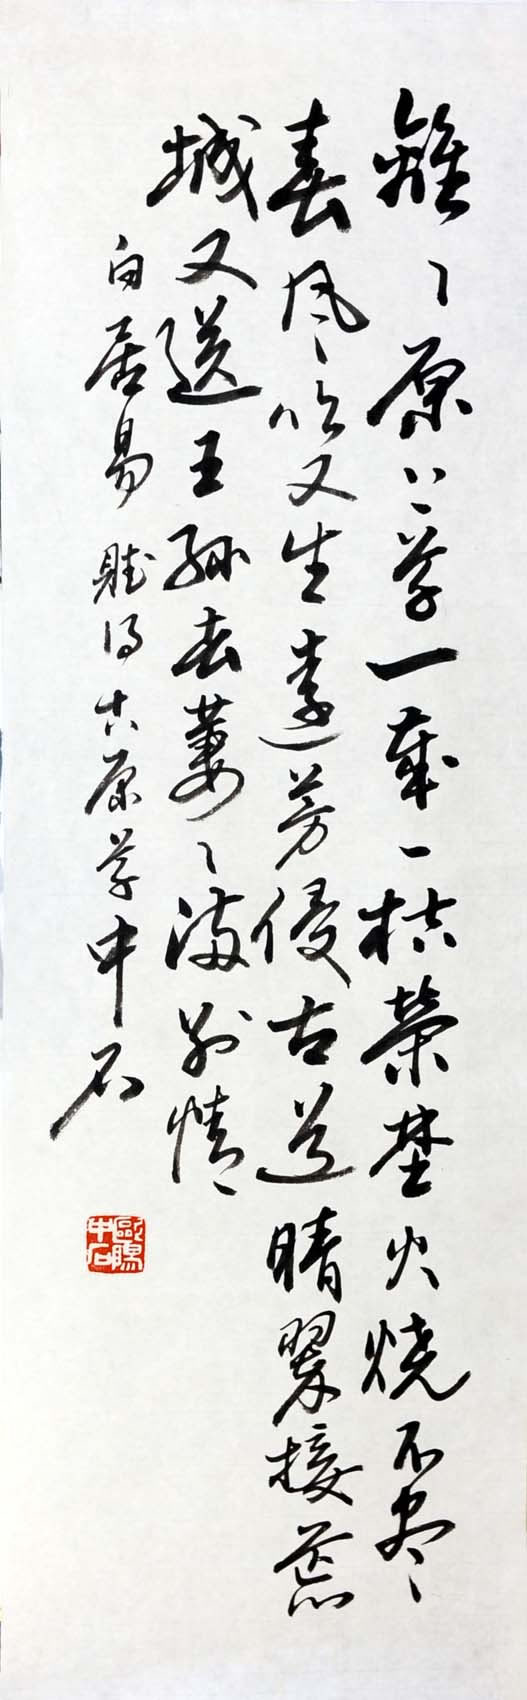 離〻原上草一歲一枯榮埜火燒不盡
春風吹又生遠芳侵古道晴翠接荒
城又送王孫去萋〻滿別情
白居易 賦得古原草 中石
歐陽中石